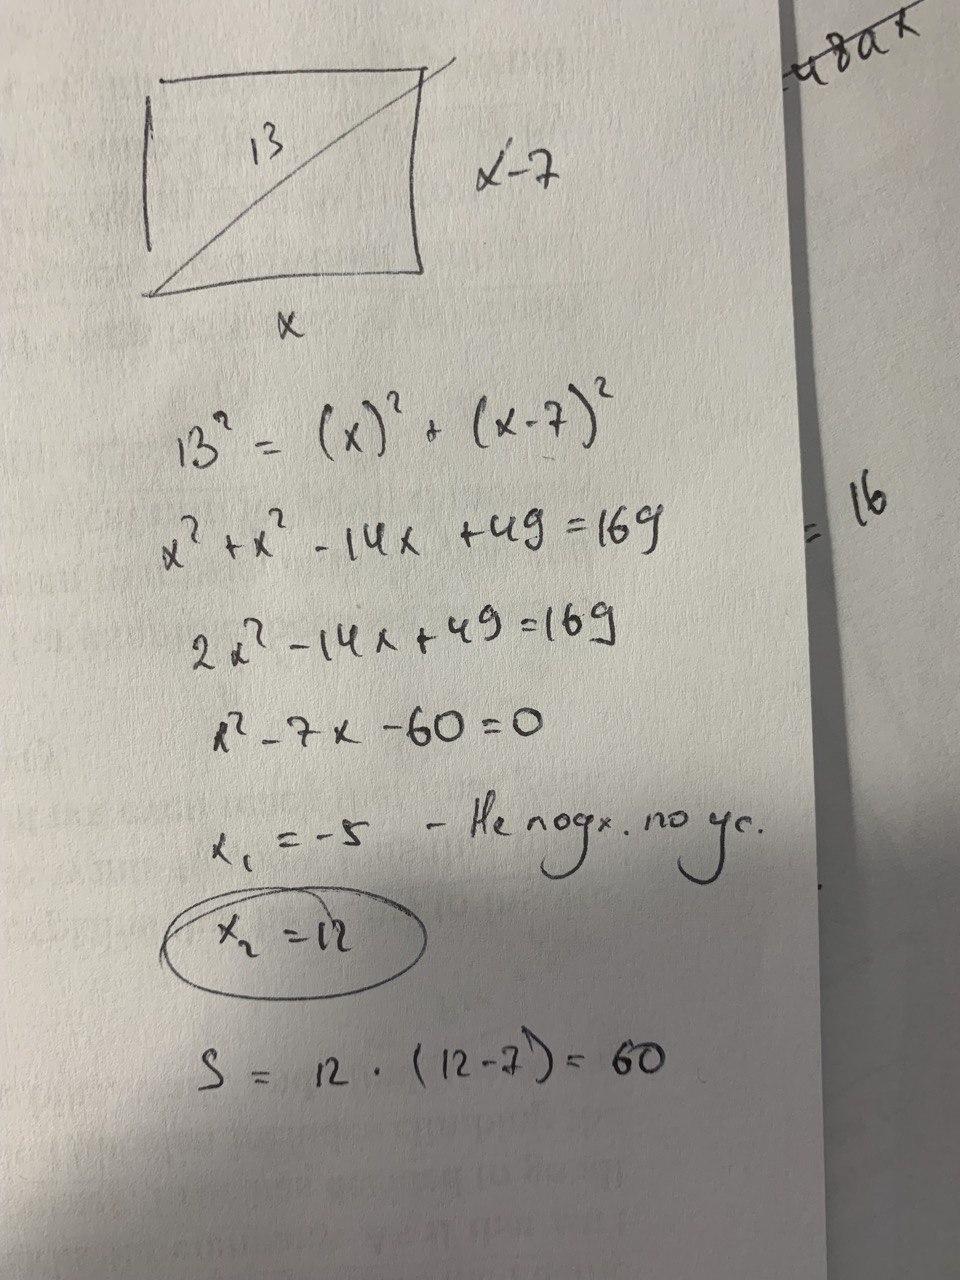 48ax
13
x-7
x
13² = (x)² + (x-7)²
= 16
x² + x² - 14x + 49 = 169
2x² - 14x + 49 = 169
x² - 7x - 60 = 0
x₁ = -5 - Не подх. по ус.
x₂ = 12
S = 12 · (12-7) = 60